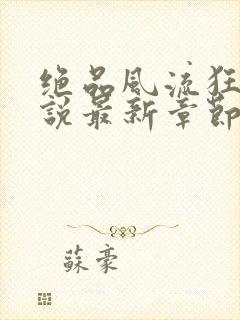 绝品風流狂
說最新章節
蘇豪